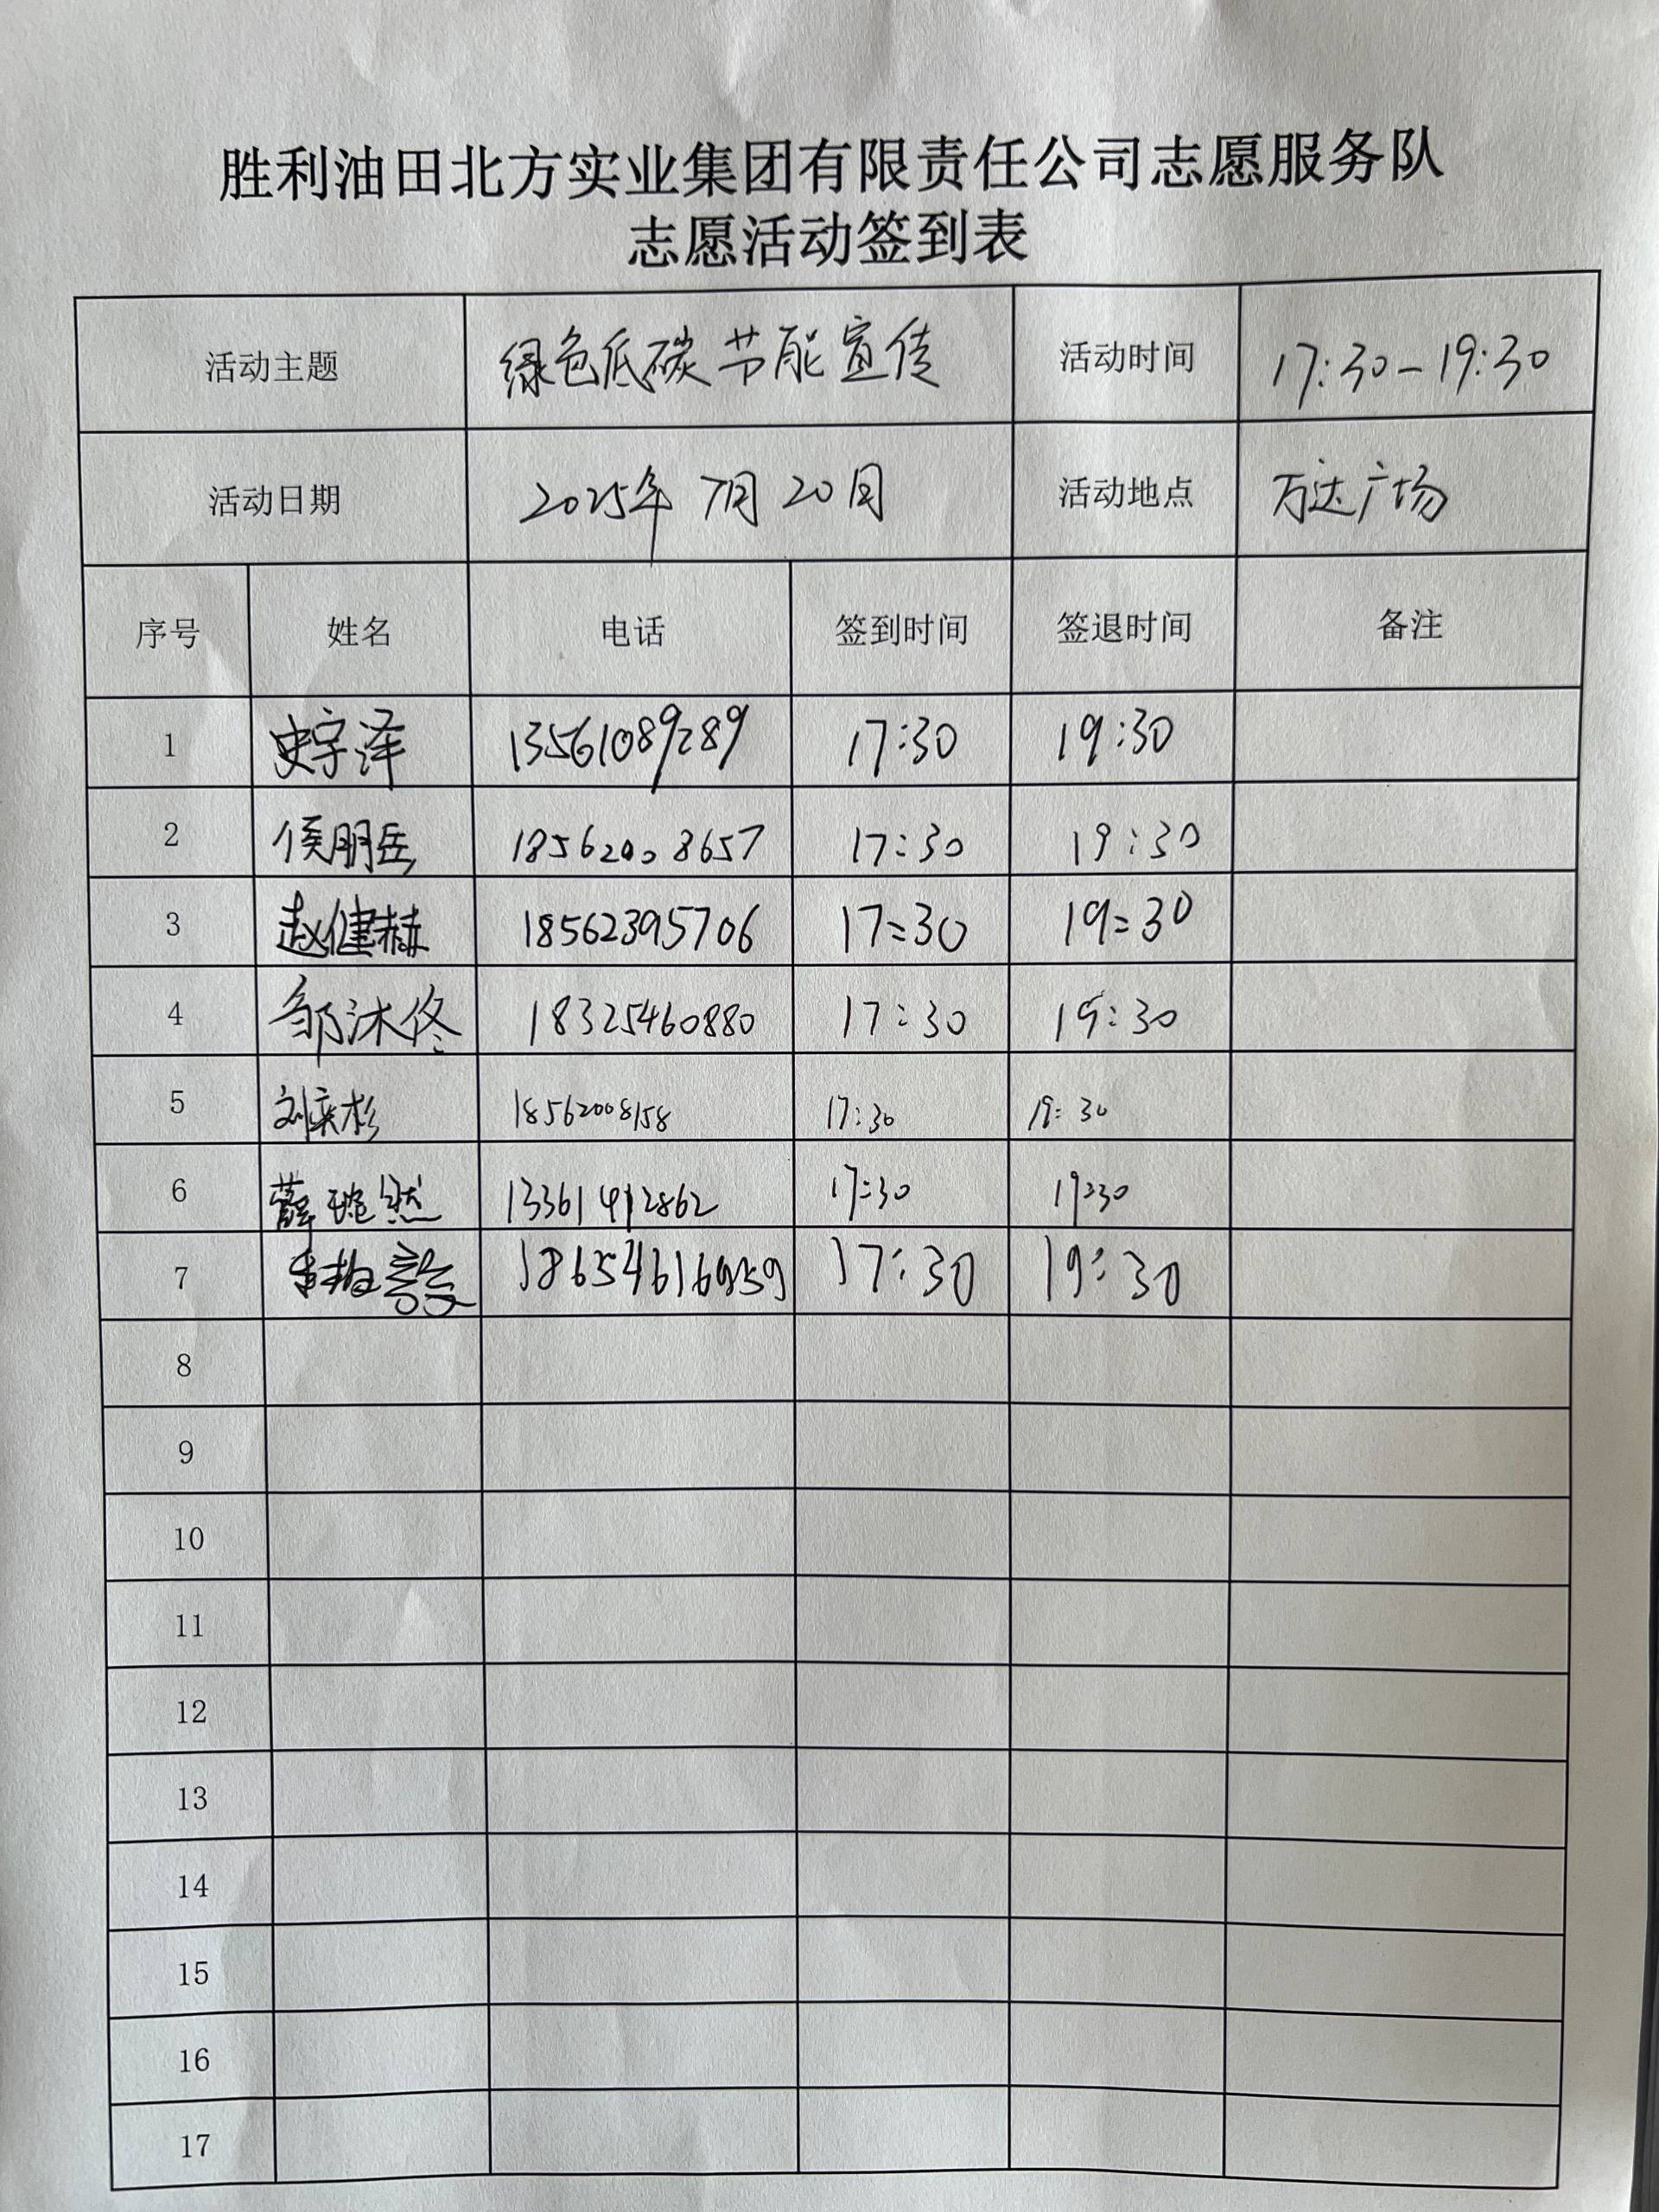 胜利油田北方实业集团有限责任公司志愿服务队
志愿活动签到表
活动主题 绿色低碳节能宣传 活动时间 17:30-19:30
活动日期 2025年7月20日 活动地点 万达广场
序号 姓名 电话 签到时间 签退时间 备注
1 史宇泽 13561089289 17:30 19:30
2 侯朋岳 18562008657 17:30 19:30
3 赵健赫 18562395706 17:30 19:30
4 邹沐佟 18325460880 17:30 19:30
5 刘奕杉 18562008158 17:30 19:30
6 薛琬然 13361412862 17:30 19:30
7 17:30 19:30
8
9
10
11
12
13
14
15
16
17